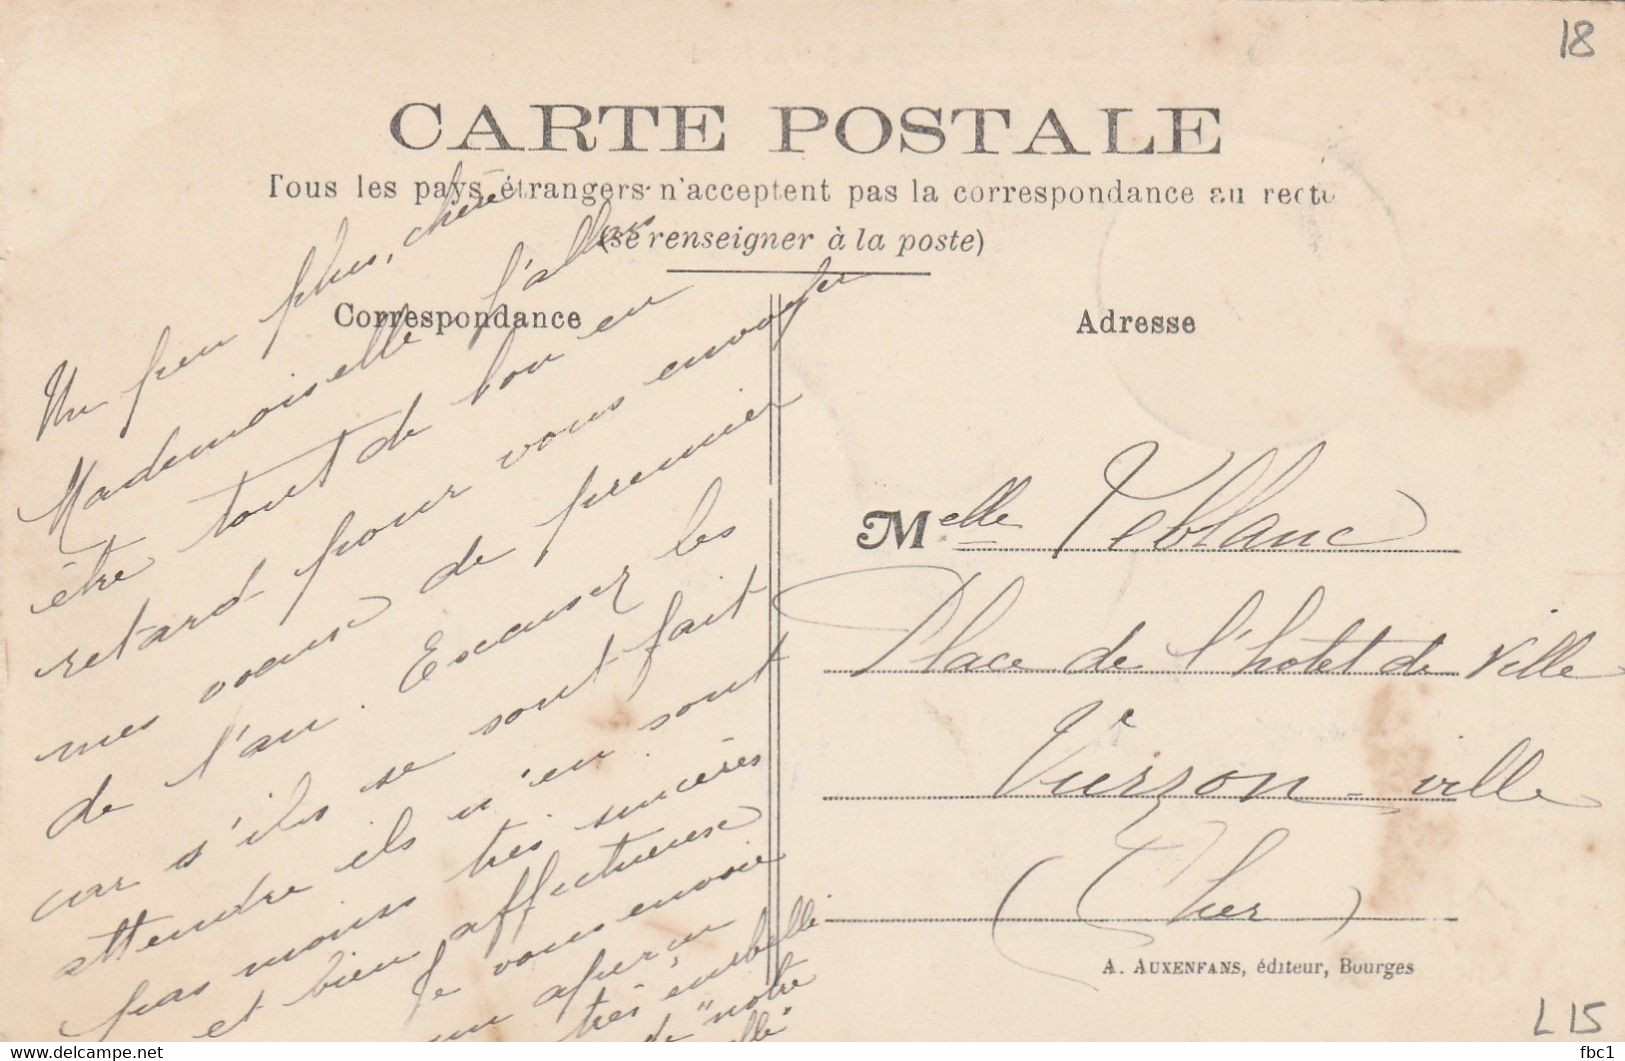 18
CARTE POSTALE
Tous les pays étrangers n'acceptent pas la correspondance au recto
(se renseigner à la poste)
Correspondance
Adresse
Un peu plus, chère
Mademoiselle j'allais
être tout de bon en
retard pour vous envoyer
mes vœux de premier
de l'an. Excusez les
car s'ils se sont fait
attendre ils n'en sont
pas moins très sincères
et bien affectueux
Je vous envoie
un aperçu
très embelli
de "notre
Melle Leblanc
Place de l'hotel de Ville
Vierzon-ville
(Cher)
A. AUXENFANS, éditeur, Bourges
L 15
www.delcampe.net
fbc1